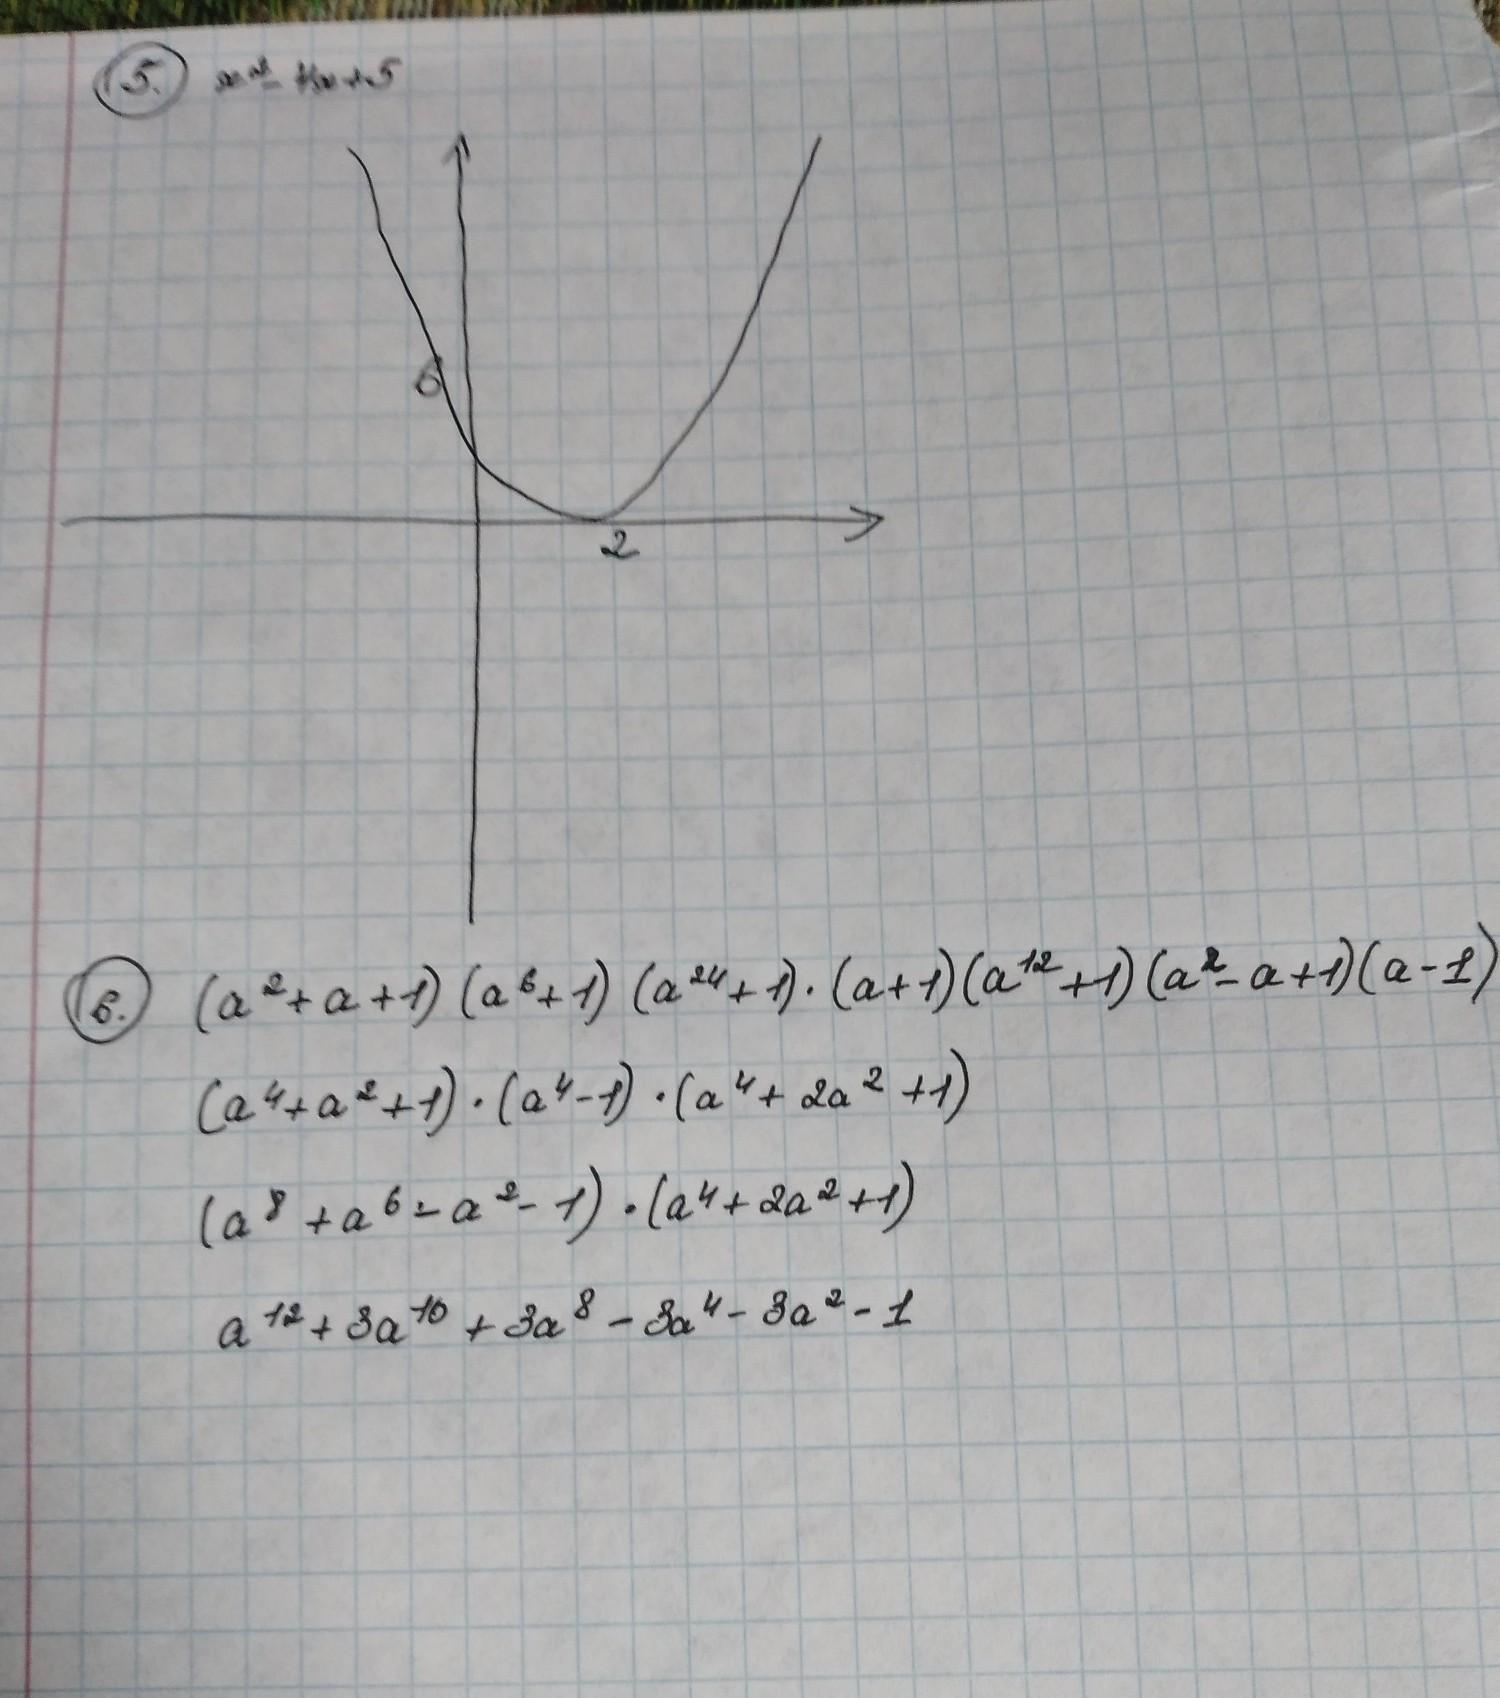 5. x² - 4x + 5
6
2
6. (a² + a + 1) (a⁶ + 1) (a²⁴ + 1) · (a + 1) (a¹² + 1) (a² - a + 1) (a - 1)
(a⁴ + a² + 1) · (a⁴ - 1) · (a⁴ + 2a² + 1)
(a⁸ + a⁶ - a² - 1) · (a⁴ + 2a² + 1)
a¹² + 3a¹⁰ + 3a⁸ - 3a⁴ - 3a² - 1